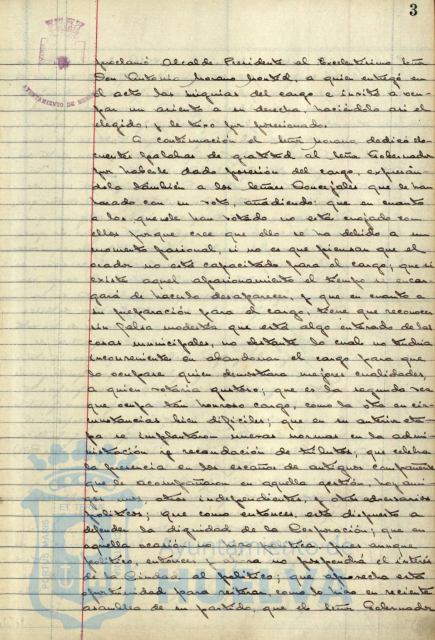 3
proclamó Alcalde Presidente al Excelentísimo Señor
Don Antonio Moreno Montid, a quien entregó en
el acto las insignias del cargo e invitó a ocu-
par un asiento a su derecha, haciéndolo así el
elegido, y le tuvo por posesionado.
A continuación el Señor Moreno dedicó elo-
cuentes palabras de gratitud al Señor Gobernador
por haberle dado posesión del cargo, expresán-
dola también a los Señores Concejales que le han
honrado con su voto, añadiendo: que en cuanto
a los que no le han votado no está enojado con
ellos porque cree que ello se ha debido a un
momento pasional, si no es que piensan que el
orador no está capacitado para el cargo; que si
existe aquel apasionamiento el tiempo se encar-
gará de hacerlo desaparecer, y que en cuanto a
su preparación para el cargo, tiene que reconocer
sin falsa modestia que está algo enterado de las
cosas municipales, no obstante lo cual no tendría
inconveniente en abandonar el cargo para que
lo ocupase quien demostrara mejores cualidades,
a quien votaría gustoso; que es la segunda vez
que ocupa tan honroso cargo, como la otra en cir-
cunstancias bien difíciles; que en su anterior eta-
pa se implantaron nuevas normas en la admi-
nistración y recaudación de tributos, que celebra
la presencia en los escaños de antiguos compañeros
que le acompañaron en aquella gestión, hoy ami-
gos unos, otros independientes, y otros adversarios
políticos; que como entonces, está dispuesto a
defender la dignidad de la Corporación; que en
aquella ocasión no hizo política, pues aunque
político, entonces y ahora no pospondrá el interés
de la Ciudad al político; que aprovecha esta
oportunidad para reiterar, como lo hizo en reciente
asamblea de su partido, que el Señor Gobernador
Ayuntamiento de